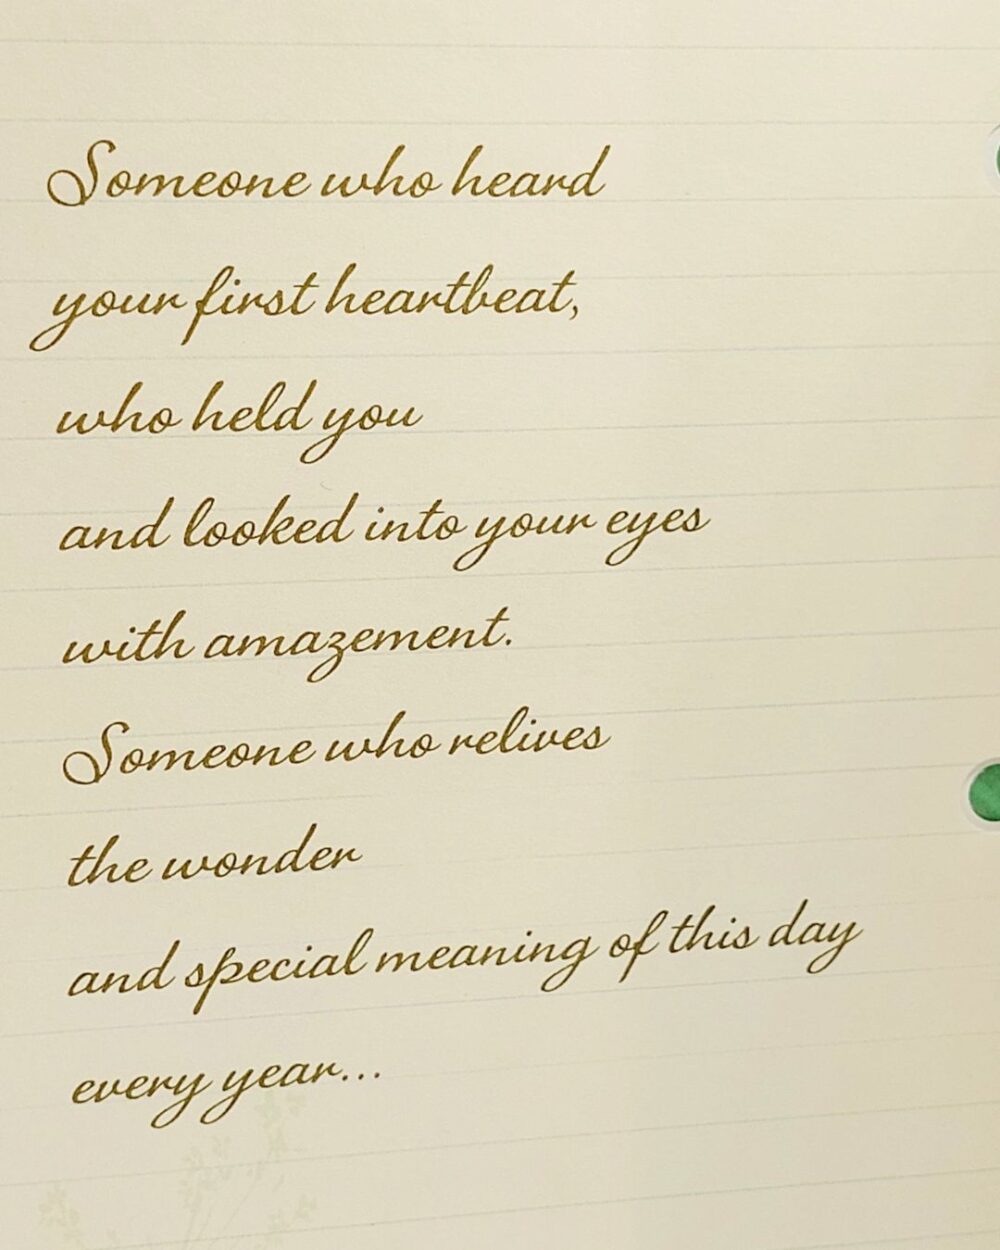 Someone who heard
your first heartbeat,
who held you
and looked into your eyes
with amazement.
Someone who relives
the wonder
and special meaning of this day
every year...